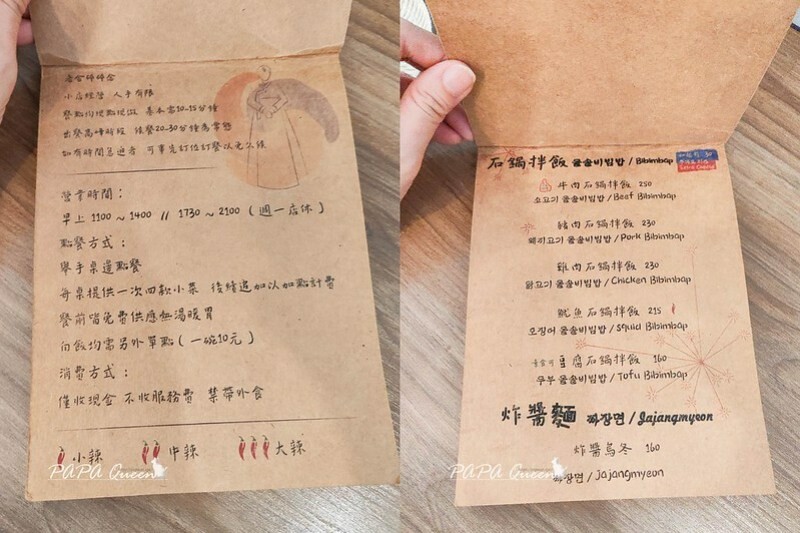 小店經營 人手有限
餐點均現點現做 基本需10-15分鐘
出餐高峰時段 候餐20-30分鐘為常態
如有時間急迫者 可事先訂位訂餐以免久候
營業時間：
早上 1100 ~ 1400 // 1730 ~ 2100 ( 週一店休 )
點餐方式：
舉手桌邊點餐
每桌提供一次四款小菜 後續追加以加點計費
餐前皆免費供應熱湯暖胃
白飯均需另外單點 ( 一碗10元 )
消費方式：
僅收現金 不收服務費 禁帶外食
小辣 中辣 大辣
PAPA Queen
石鍋拌飯 돌솥비빔밥 / Bibimbap
牛肉石鍋拌飯 250
소고기 돌솥비빔밥 / Beef Bibimbap
豬肉石鍋拌飯 230
돼지고기 돌솥비빔밥 / Pork Bibimbap
雞肉石鍋拌飯 230
닭고기 돌솥비빔밥 / Chicken Bibimbap
魷魚石鍋拌飯 215
오징어 돌솥비빔밥 / Squid Bibimbap
豆腐石鍋拌飯 160
두부 돌솥비빔밥 / Tofu Bibimbap
炸醬麵 짜장면 / Jajangmyeon
炸醬烏冬 160
짜장면 / jajangmyeon
PAPA Queen